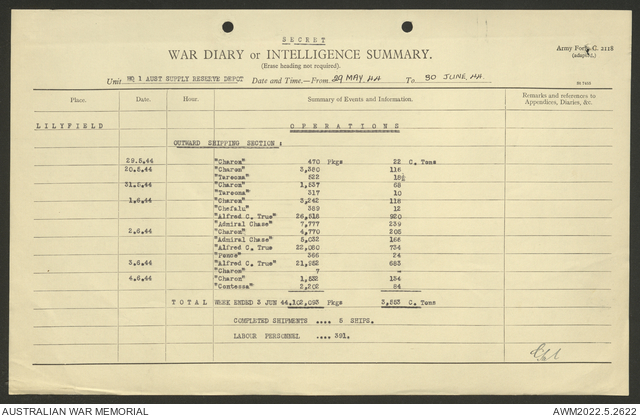 SECRET
WAR DIARY or INTELLIGENCE SUMMARY.
Army Form C. 2118
(Erase heading not required).
Unit HQ 1 AUST SUPPLY RESERVE DEPOT Date and Time.—From 29 MAY 44 To 30 JUNE 44.
Place. Date. Hour. Summary of Events and Information. Remarks and references to Appendices, Diaries, &c.
LILYFIELD OPERATIONS
OUTWARD SHIPPING SECTION:
29.5.44 "Charon" 470 Pkgs 22 C. Tons
"Charon" 3,380 116
"Taroona" 522 18½
"Charon" 1,537 68
"Taroona" 317 10
1.6.44 "Charon" 3,242 118
"Chefalu" 389 12
"Alfred C. True" 26,518 920
"Admiral Chase" 7,777 239
2.6.44 "Charon" 4,770 205
"Admiral Chase" 5,032 166
"Alfred C. True" 22,080 734
366 24
3.6.44 "Alfred C. True" 683
"Charon" 7 -
4.6.44 "Charon" 1,532 134
"Contessa" 2,202 84
TOTAL WEEK ENDED 3 JUN 44. 102,093 Pkgs 3,553 C. Tons
COMPLETED SHIPMENTS .... 5 SHIPS.
LABOUR PERSONNEL .... 391.
AUSTRALIAN WAR MEMORIAL
AWM2022.5.2622